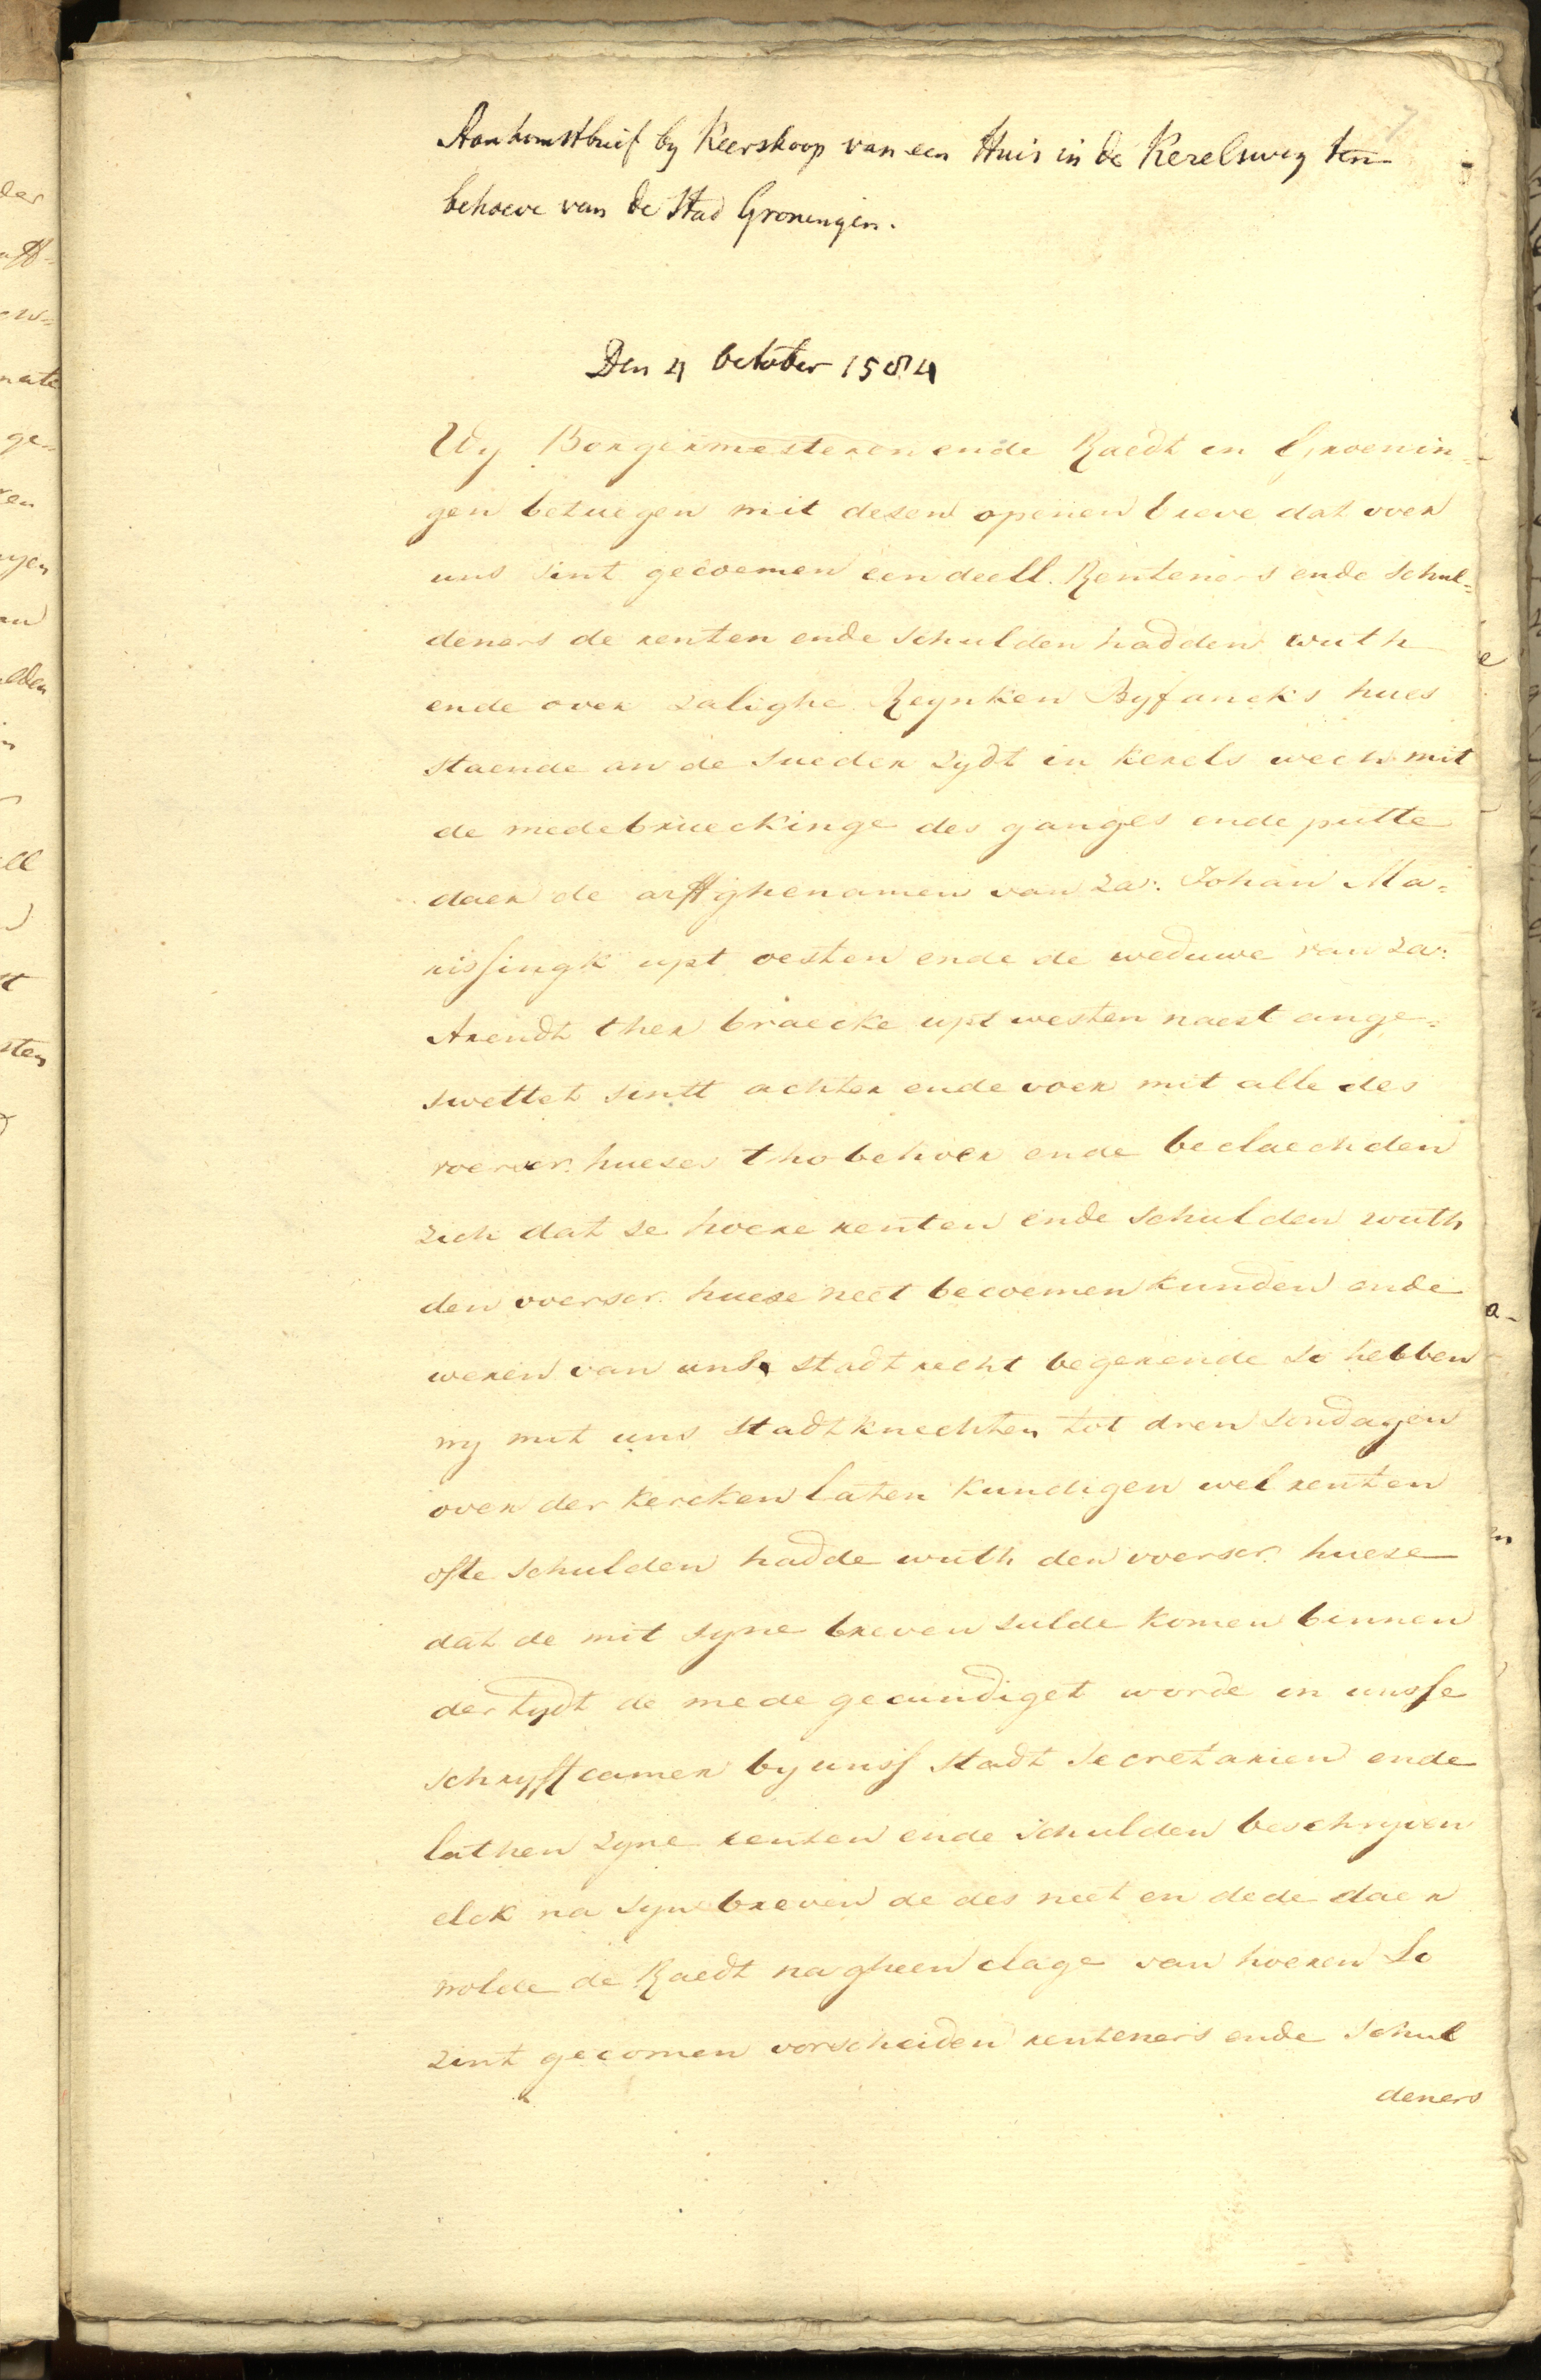 Aankomstbrief by Keerskoop van een Huis in de Kerelsweg ten
behoeve van de Stad Groningen.
Den 4 October 1584
Wy Borgermesteren ende Raedt in Groenin-
gen betuegen mit desen openen breve dat voer
uns sint gecoemen eendeell Renteners ende schul=
deners de renten ende schulden hadden wuth
ende over zalighe Reynken Byfancks hues
staende an de sueder zydt in kerels wech mit
de medebrueckinge des ganges ende putte
daer de arffghenamen van za: Johan Ma=
rissingk upt oesten ende de weduwe van za:
Arendt ther braecke upt westen naest ange=
swettet sintt achter ende voer mit alle des
voerscr. hueses thobehoer ende beclaechden
zich dat se hoere renten ende schulden wuth
den voerscr. huese neet becoemen kunden ende
weren van uns stadtrecht begerende so hebben
wy mit uns Stadtknechten tot dren sondagen
over der kercken laten kundigen wel renten
ofte schulden hadde wuth den voerscr. huese
dat de mit syne breven sulde komen binnen
der tydt de mede gecundiget worde in unsse
schryffcamer by unss stadt Secretarien ende
lathen zyne renten ende schulden beschryven
elck na syn breven de des neet en dede daer
wolde de Raedt na gheen clage van hoeren So
zint gecomen vorscheiden renteners ende schul
deners